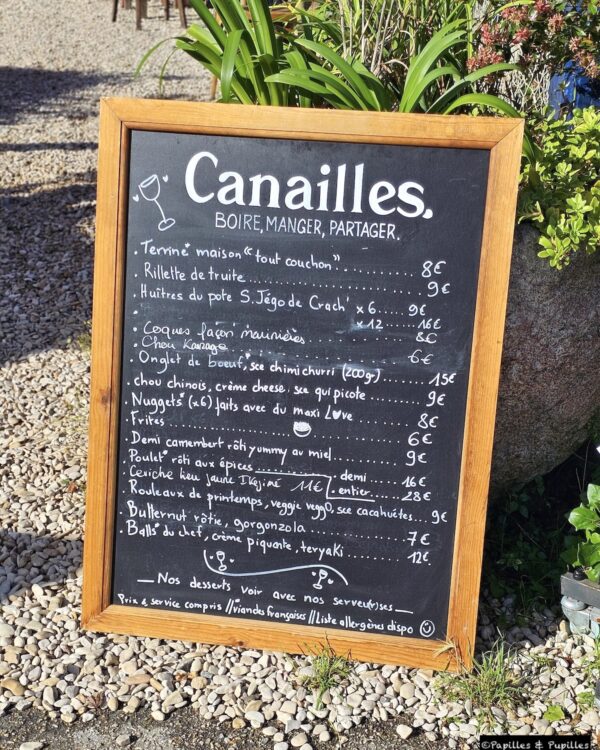 Canailles.
BOIRE, MANGER, PARTAGER.
. Terrine* maison "tout couchon" ........... 8€
. Rillette de truite ........... 9€
. Huîtres du pote S. Jégo de Crach' x 6 ..... 9€
x 12 ..... 16€
. Coques façon marinières ........... 8€
Chou ........... 6€
. Onglet de boeuf*, sce chimichurri (200gr) ....... 15€
. chou chinois, crème cheese, sce qui picote ....... 9€
. Nuggets* (x6) faits avec du maxi L♥ve ....... 8€
. Frites ........... 6€
. Demi camembert rôti yummy au miel ....... 9€
. Poulet* rôti aux épices demi ..... 16€
entier ..... 28€
. Ceviche lieu jaune Ikejime 11€
. Rouleaux de printemps, veggie veggO, sce cacahuètes... 9€
. Butternut rôtie, gorgonzola ........... 7€
. Balls* du chef, crème piquante, teryaki ........... 12€
— Nos desserts voir avec nos serveu(r)ses —
Prix & service compris // *viandes françaises // Liste allergènes dispo
©Papilles & Pupilles